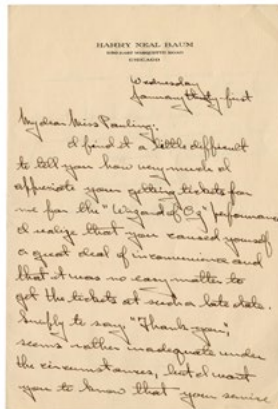 HARRY NEAL BAUM
CHICAGO
Wednesday
January thirty-first
My dear Miss Pauling:
I find it a little difficult
to tell you how very much I
appreciate your getting tickets for
me for the "Wizard of Oz" performance
I realize that you caused yourself
a great deal of inconvenience and
that it was no easy matter to
get the tickets at such a late date.
Simply to say "Thank you",
seems rather inadequate under
the circumstances, but I want
you to know that your service